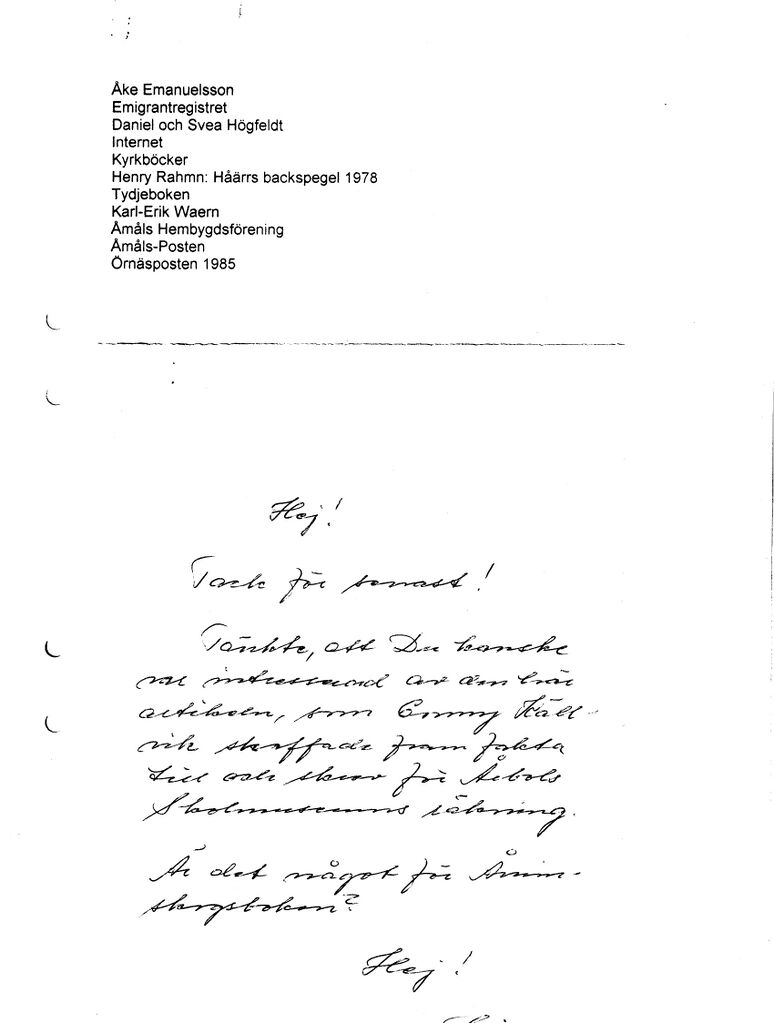 Åke Emanuelsson
Emigrantregistret
Daniel och Svea Högfeldt
Internet
Kyrkböcker
Henry Rahmn: Håärrs backspegel 1978
Tydjeboken
Karl-Erik Waern
Åmåls Hembygdsförening
Åmåls-Posten
Örnäsposten 1985
Hej!
Tack för senast!
Tänkte, att Du kanske
var intresserad av den här
artikeln, som Emmy Häll-
vik skaffade fram fakta
till och skrev för Ärbols
Skolmuseums räkning.
Är det något för Ånim-
skogsboken?
Hej!